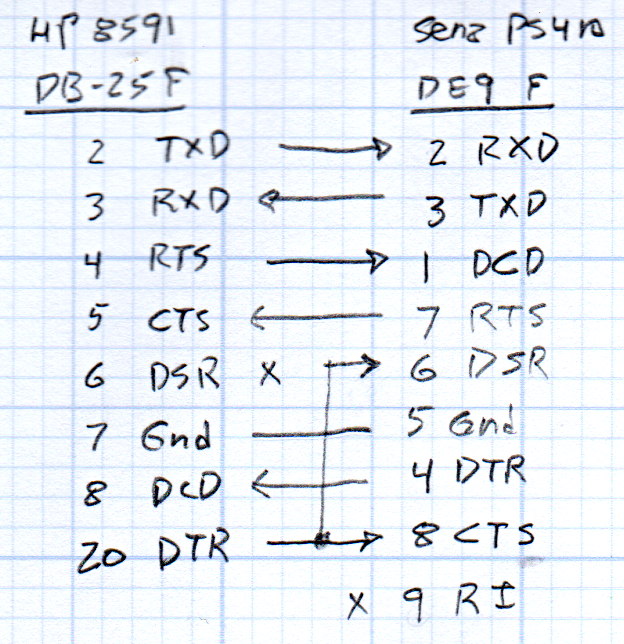 HP 8591 Sena PS410
DB-25F DE9 F
2 TXD → 2 RXD
3 RXD ← 3 TXD
4 RTS → 1 DCD
5 CTS ← 7 RTS
6 DSR X → 6 DSR
7 Gnd — 5 Gnd
8 DCD ← 4 DTR
20 DTR → 8 CTS
X 9 RI